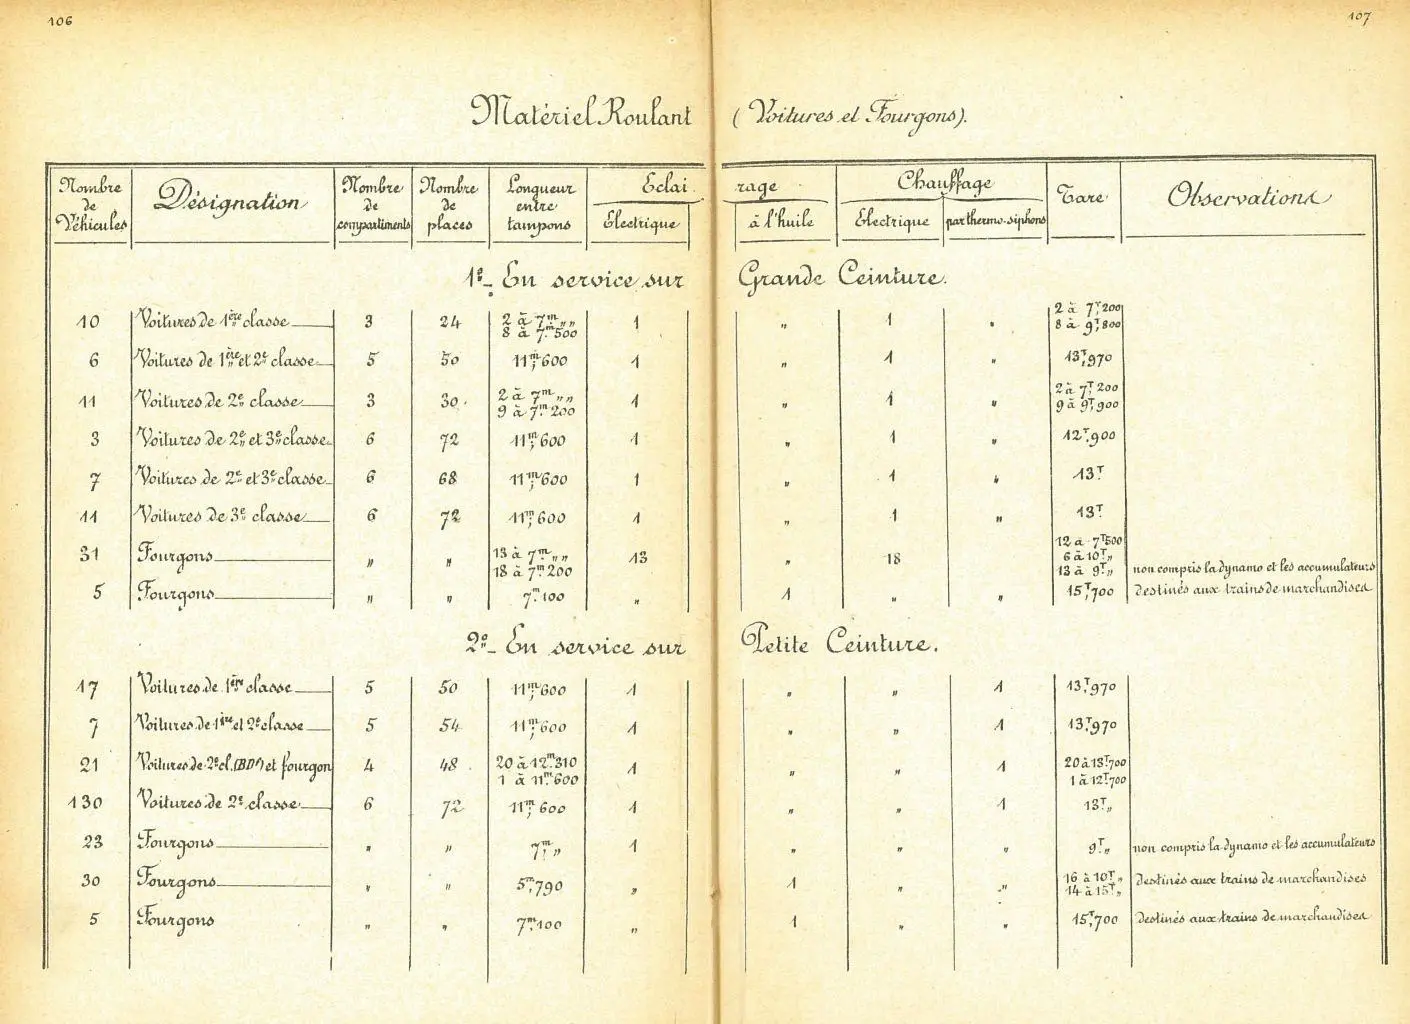 106
107
Matériel Roulant (Voitures et Fourgons).
Nombre de Véhicules | Désignation | Nombre de compartiments | Nombre de places | Longueur entre tampons | Eclairage | Chauffage | Tare | Observations
Electrique | à l'huile | Electrique | par thermo-siphons
1º_ En service sur Grande Ceinture.
10 | Voitures de 1ère classe | 3 | 24 | 2 à 7m,,, 8 à 7m,500 | 1 | " | 1 | " | 2 à 7T,200 8 à 9T,800
6 | Voitures de 1ère et 2e classe | 5 | 50 | 11m,600 | 1 | " | 1 | " | 13T,970
11 | Voitures de 2e classe | 3 | 30 | 2 à 7m,,, 9 à 7m,200 | 1 | " | 1 | " | 2 à 7T,200 9 à 9T,900
3 | Voitures de 2e et 3e classe | 6 | 72 | 11m,600 | 1 | " | 1 | " | 12T,900
7 | Voitures de 2e et 3e classe | 6 | 68 | 11m,600 | 1 | " | 1 | " | 13T
11 | Voitures de 3e classe | 6 | 72 | 11m,600 | 1 | " | 1 | " | 13T
31 | Fourgons | " | " | 13 à 7m,,, 18 à 7m,200 | 13 | " | 18 | 12 à 7T,500 6 à 10T,, 13 à 9T,, | non compris la dynamo et les accumulateurs
5 | Fourgons | " | " | 7m,100 | " | 1 | " | " | 15T,700 | destinés aux trains de marchandises
2º_ En service sur Petite Ceinture.
17 | Voitures de 1ère classe | 5 | 50 | 11m,600 | 1 | " | " | 1 | 13T,970
7 | Voitures de 1ère et 2e classe | 5 | 54 | 11m,600 | 1 | " | " | 1 | 13T,970
21 | Voitures de 2e cl. (BDf) et fourgon | 4 | 48 | 20 à 12m,310 1 à 11m,600 | 1 | " | " | 1 | 20 à 13T,700 1 à 12T,700
130 | Voitures de 2e classe | 6 | 72 | 11m,600 | 1 | " | " | 1 | 13T,,
23 | Fourgons | " | " | 7m,,, | 1 | " | " | " | 9T,, | non compris la dynamo et les accumulateurs
30 | Fourgons | " | " | 5m,790 | " | 1 | " | " | 16 à 10T,, 14 à 15T,, | destinés aux trains de marchandises
5 | Fourgons | " | " | 7m,100 | " | 1 | " | " | 15T,700 | destinés aux trains de marchandises